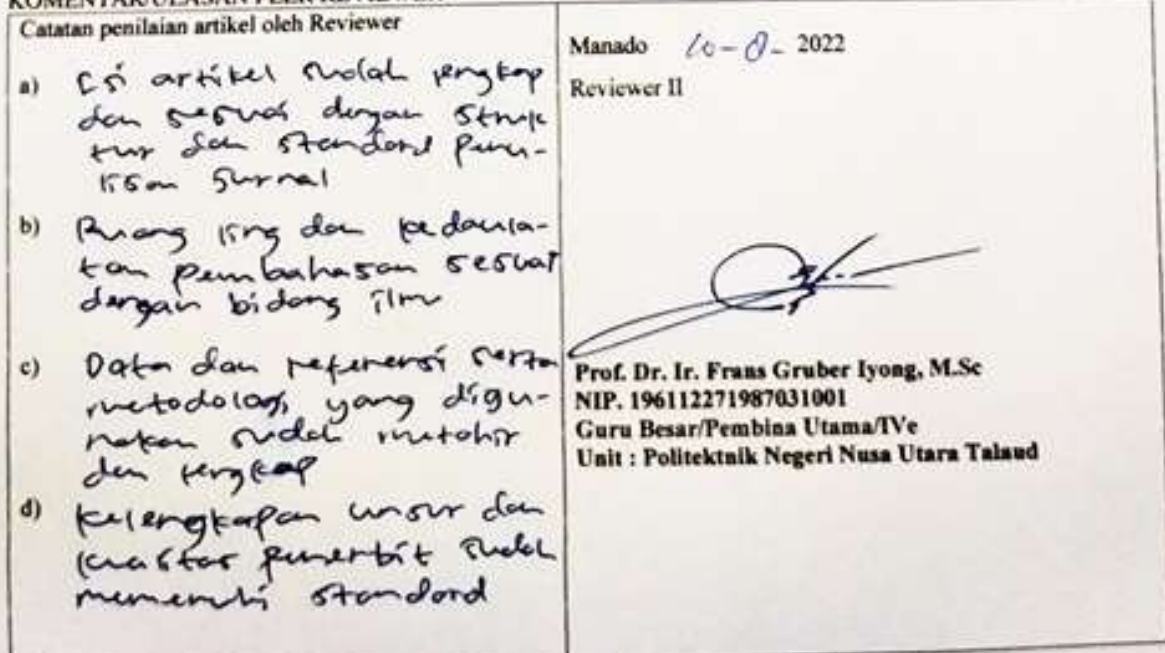 KOMENTAR/ULASAN PEER REVIEWER
Catatan penilaian artikel oleh Reviewer
a) Isi artikel sudah lengkap
dan sesuai dengan struk
tur dan standard penu-
lisan Jurnal
b) Ruang ling dan kedaula-
tan pembahasan sesuai
dengan bidang ilmu
c) Data dan referensi serta
metodologi yang digu-
nakan sudah mutahir
dan lengkap
d) Kelengkapan unsur dan
kualitas penerbit sudah
memenuhi standard
Manado 10-8-2022
Reviewer II
Prof. Dr. Ir. Frans Gruber Iyong, M.Sc
NIP. 196112271987031001
Guru Besar/Pembina Utama/IVe
Unit : Politektnik Negeri Nusa Utara Talaud